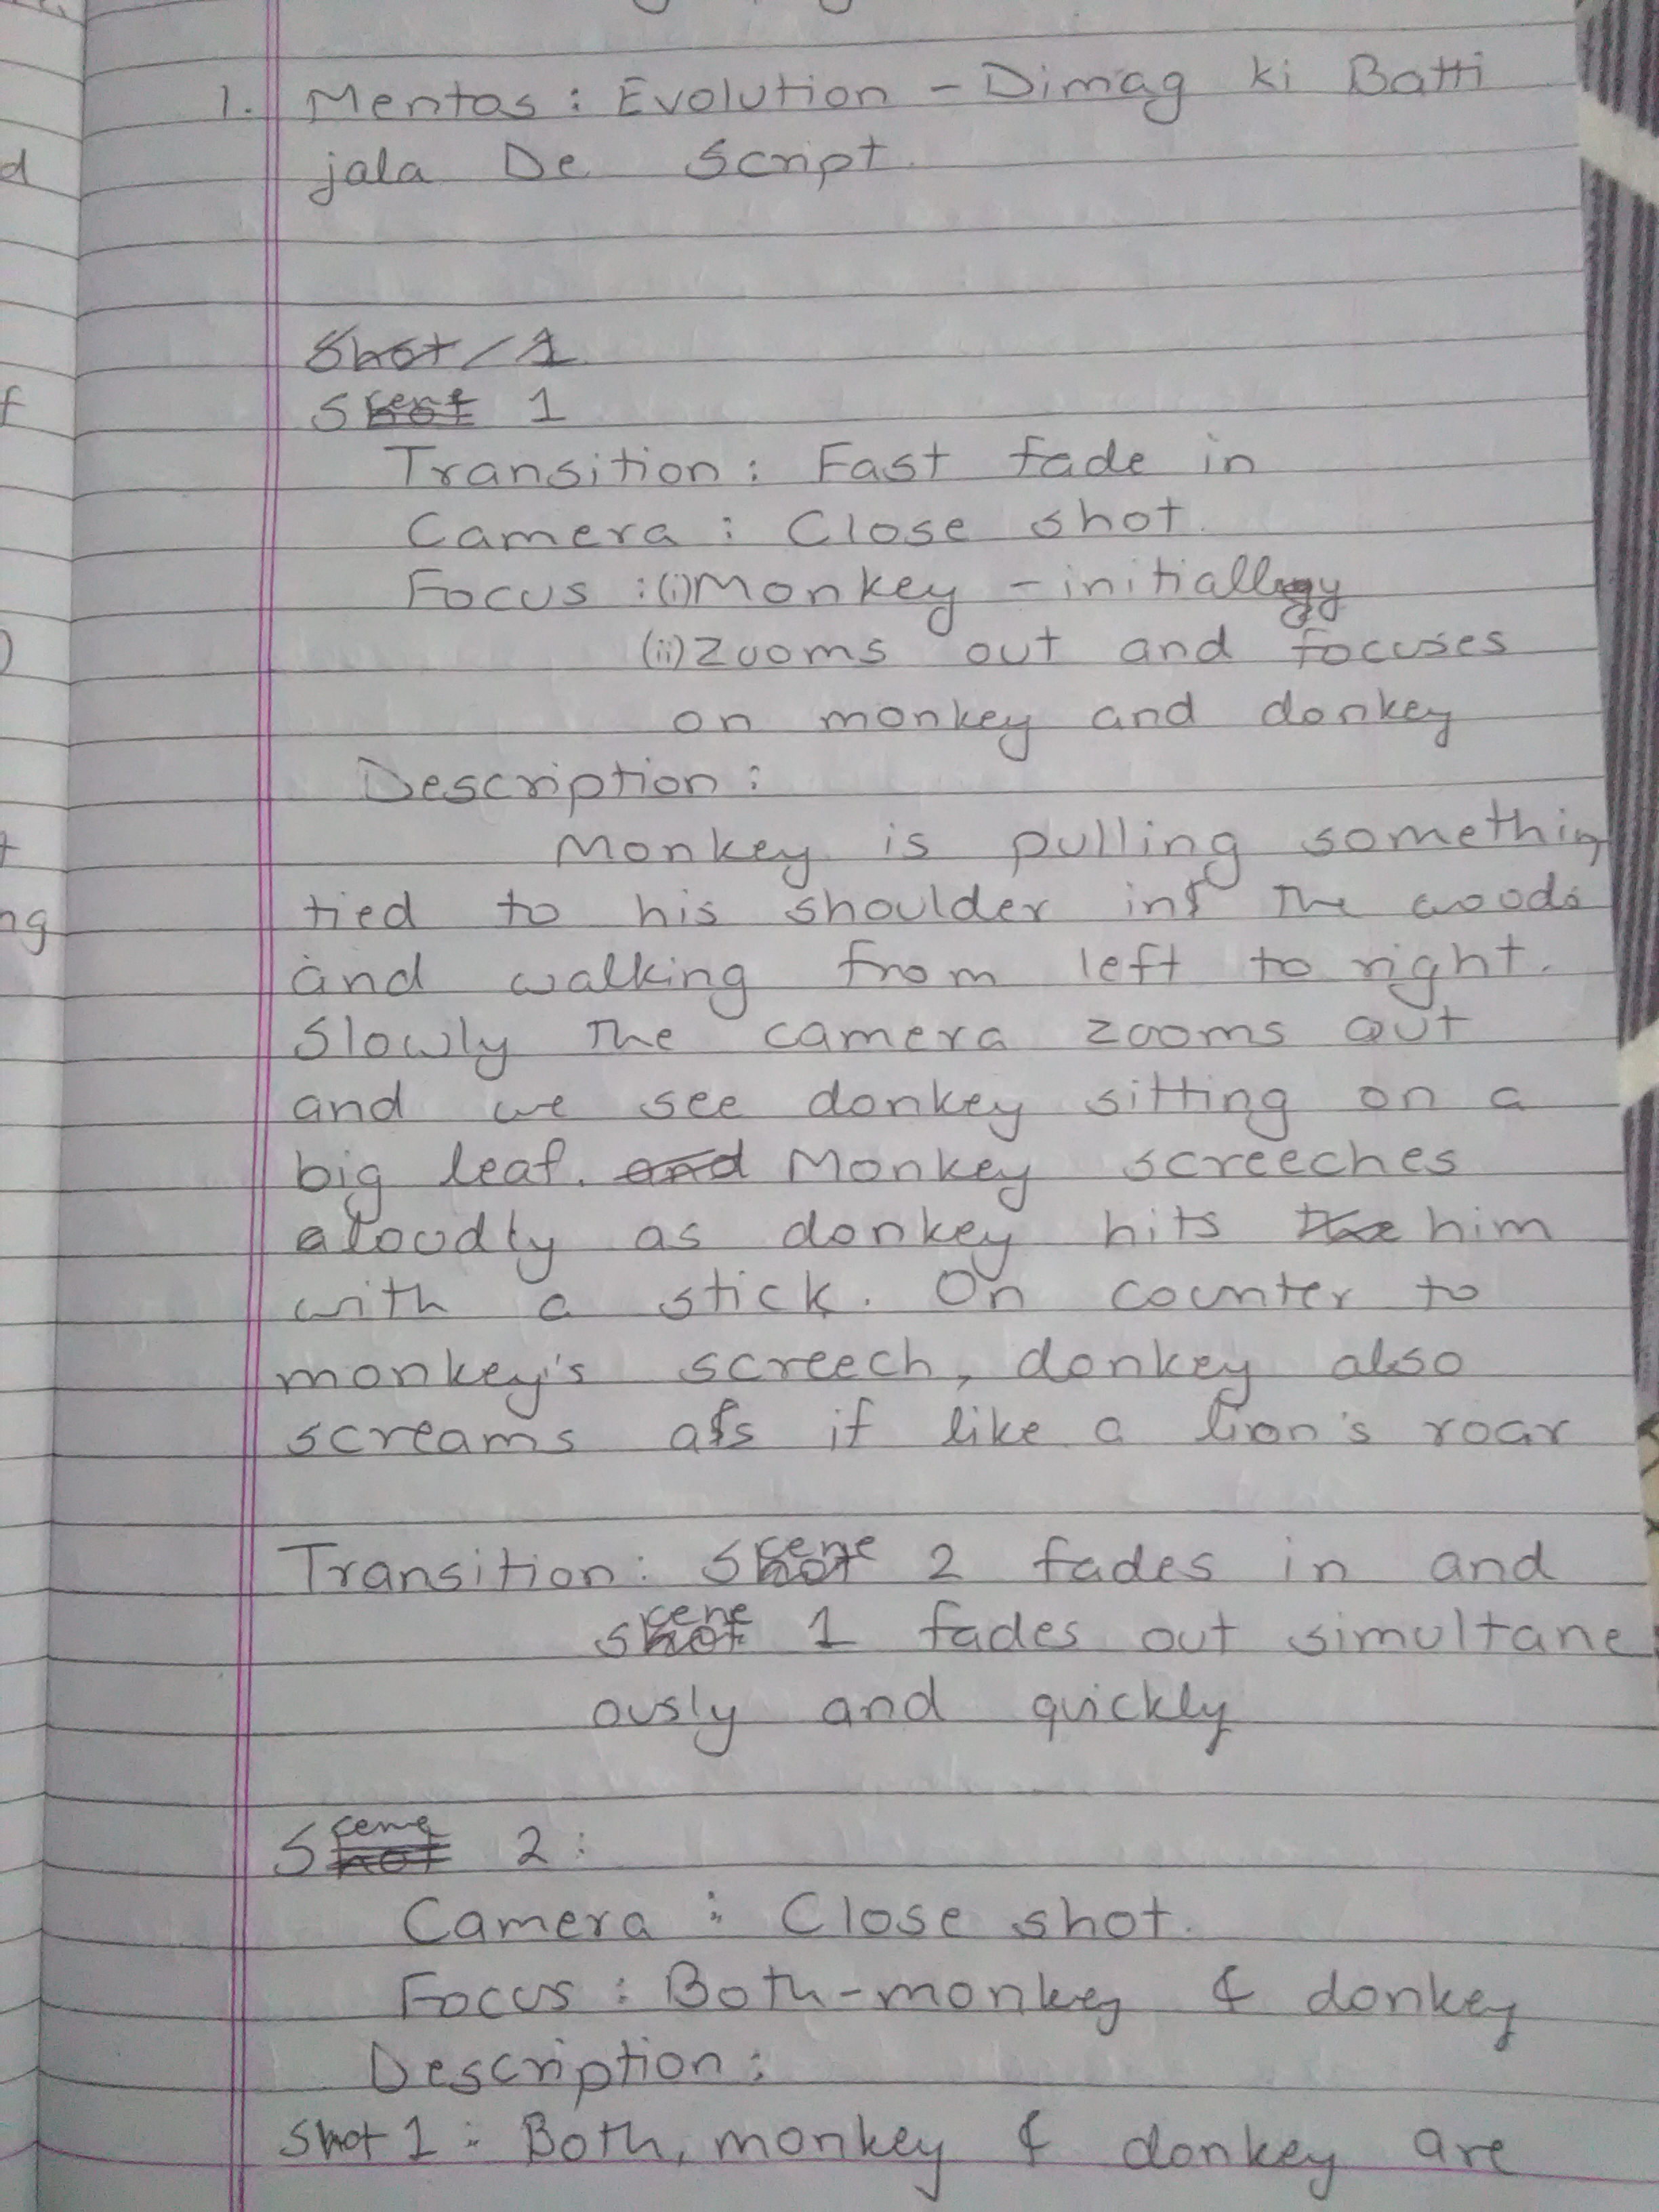 1. Mentos : Evolution - Dimag ki Batti
jala De Script.
Shot / 1
Scene 1
Transition : Fast fade in
Camera : Close shot.
Focus : (i) Monkey - initially
(ii) Zooms out and focuses
on monkey and donkey
Description :
Monkey is pulling somethin
tied to his shoulder in the woods
and walking from left to right.
Slowly the camera zooms out
and we see donkey sitting on a
big leaf. and Monkey screeches
aloudly as donkey hits the him
with a stick. On counter to
monkey's screech, donkey also
screams as if like a lion's roar
Transition : Scene 2 fades in and
scene 1 fades out simultane
ously and quickly
Scene 2 :
Camera : Close shot.
Focus : Both - monkey & donkey
Description :
Shot 1 : Both, monkey & donkey are
d
f
)
t
ng